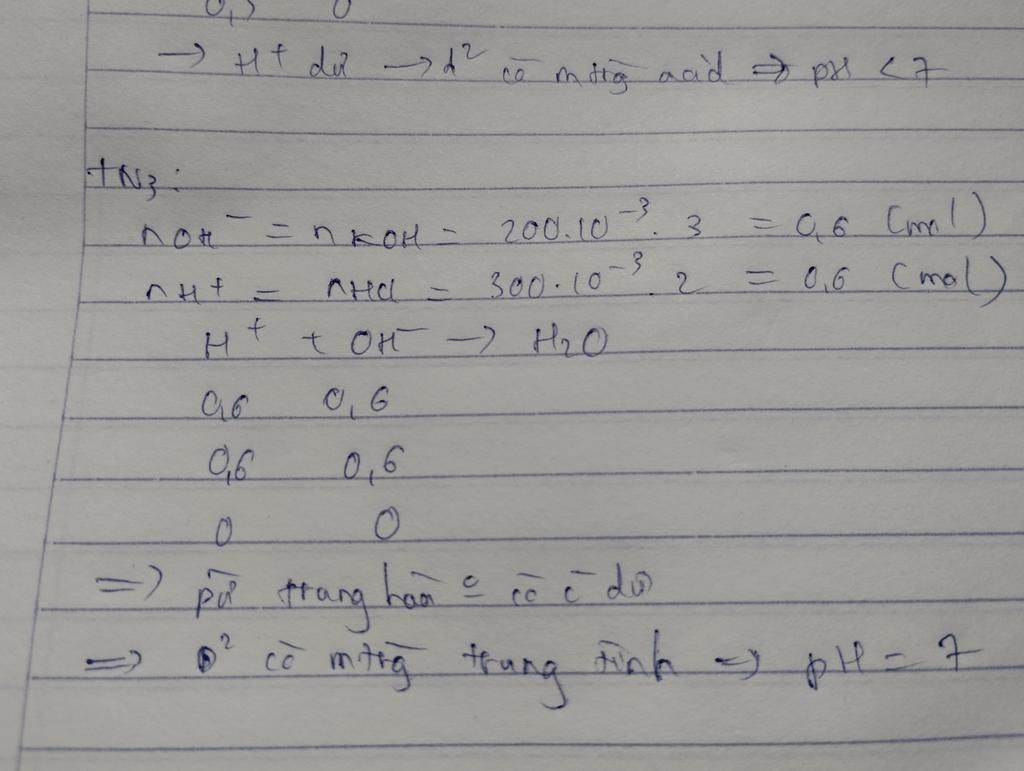 0,3 0
→ H⁺ dư → d² có mtrg acid ⇒ pH < 7
TN3:
nOH⁻ = nKOH = 200.10⁻³. 3 = 0,6 (mol)
nH⁺ = nHCl = 300.10⁻³. 2 = 0,6 (mol)
H⁺ + OH⁻ → H₂O
0,6 0,6
0,6 0,6
0 0
=> pứ trung hoà có dư
=> D² có mtrg trung tính => pH = 7